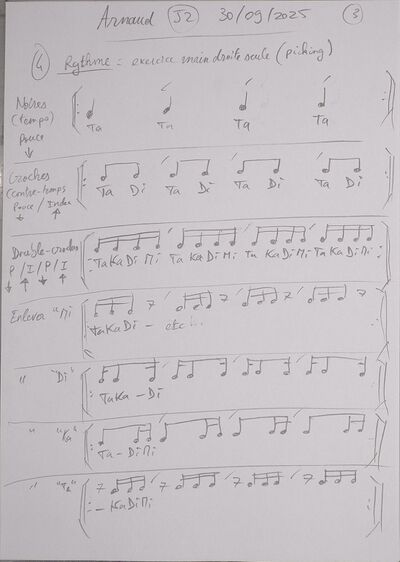 Arnaud J2 30/09/2025 3
4 Rythme = exercice main droite seule (picking)
Noires
(temps)
Pouce
↓
Ta Ta Ta Ta
Croches
(contre-temps
Pouce / Index
↓ ↑
Ta Di Ta Di Ta Di Ta Di
Double-croches
P / I / P / I
↓ ↑ ↓ ↑
TaKaDiMi Ta KaDiMi Ta KaDiMi Ta KaDiMi
Enlever "Mi
TaKaDi - etc...
" "Di"
TaKa - Di
" "Ka"
Ta - DiMi
" "Ta"
- KaDiMi